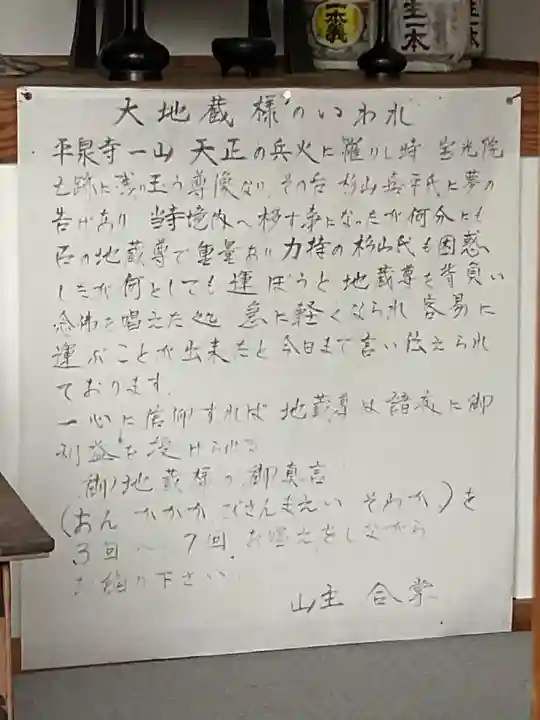 一本義
生一本
大地蔵様のいわれ
平泉寺一山 天正の兵火に罹りし時 宝光院
七跡に残り玉う尊像なり その后 杉山喜平氏に夢の
告げあり 当寺境内へ移す事になったが何分にも
石の地蔵尊で重量あり力持の杉山氏も困惑
したが何としても運ぼうと地蔵尊を背負い
念佛を唱えた処 急に軽くなられ容易に
運ぶことが出来たと今日まで言い伝えられ
ております.
一心に信仰すれば地蔵尊は諸衆に御
利益を授けられる
御地蔵様の御真言
(おん かかか びさんまえい そわか)を
3回〜7回 お唱えをしながら
お詣り下さい.
山主 合掌